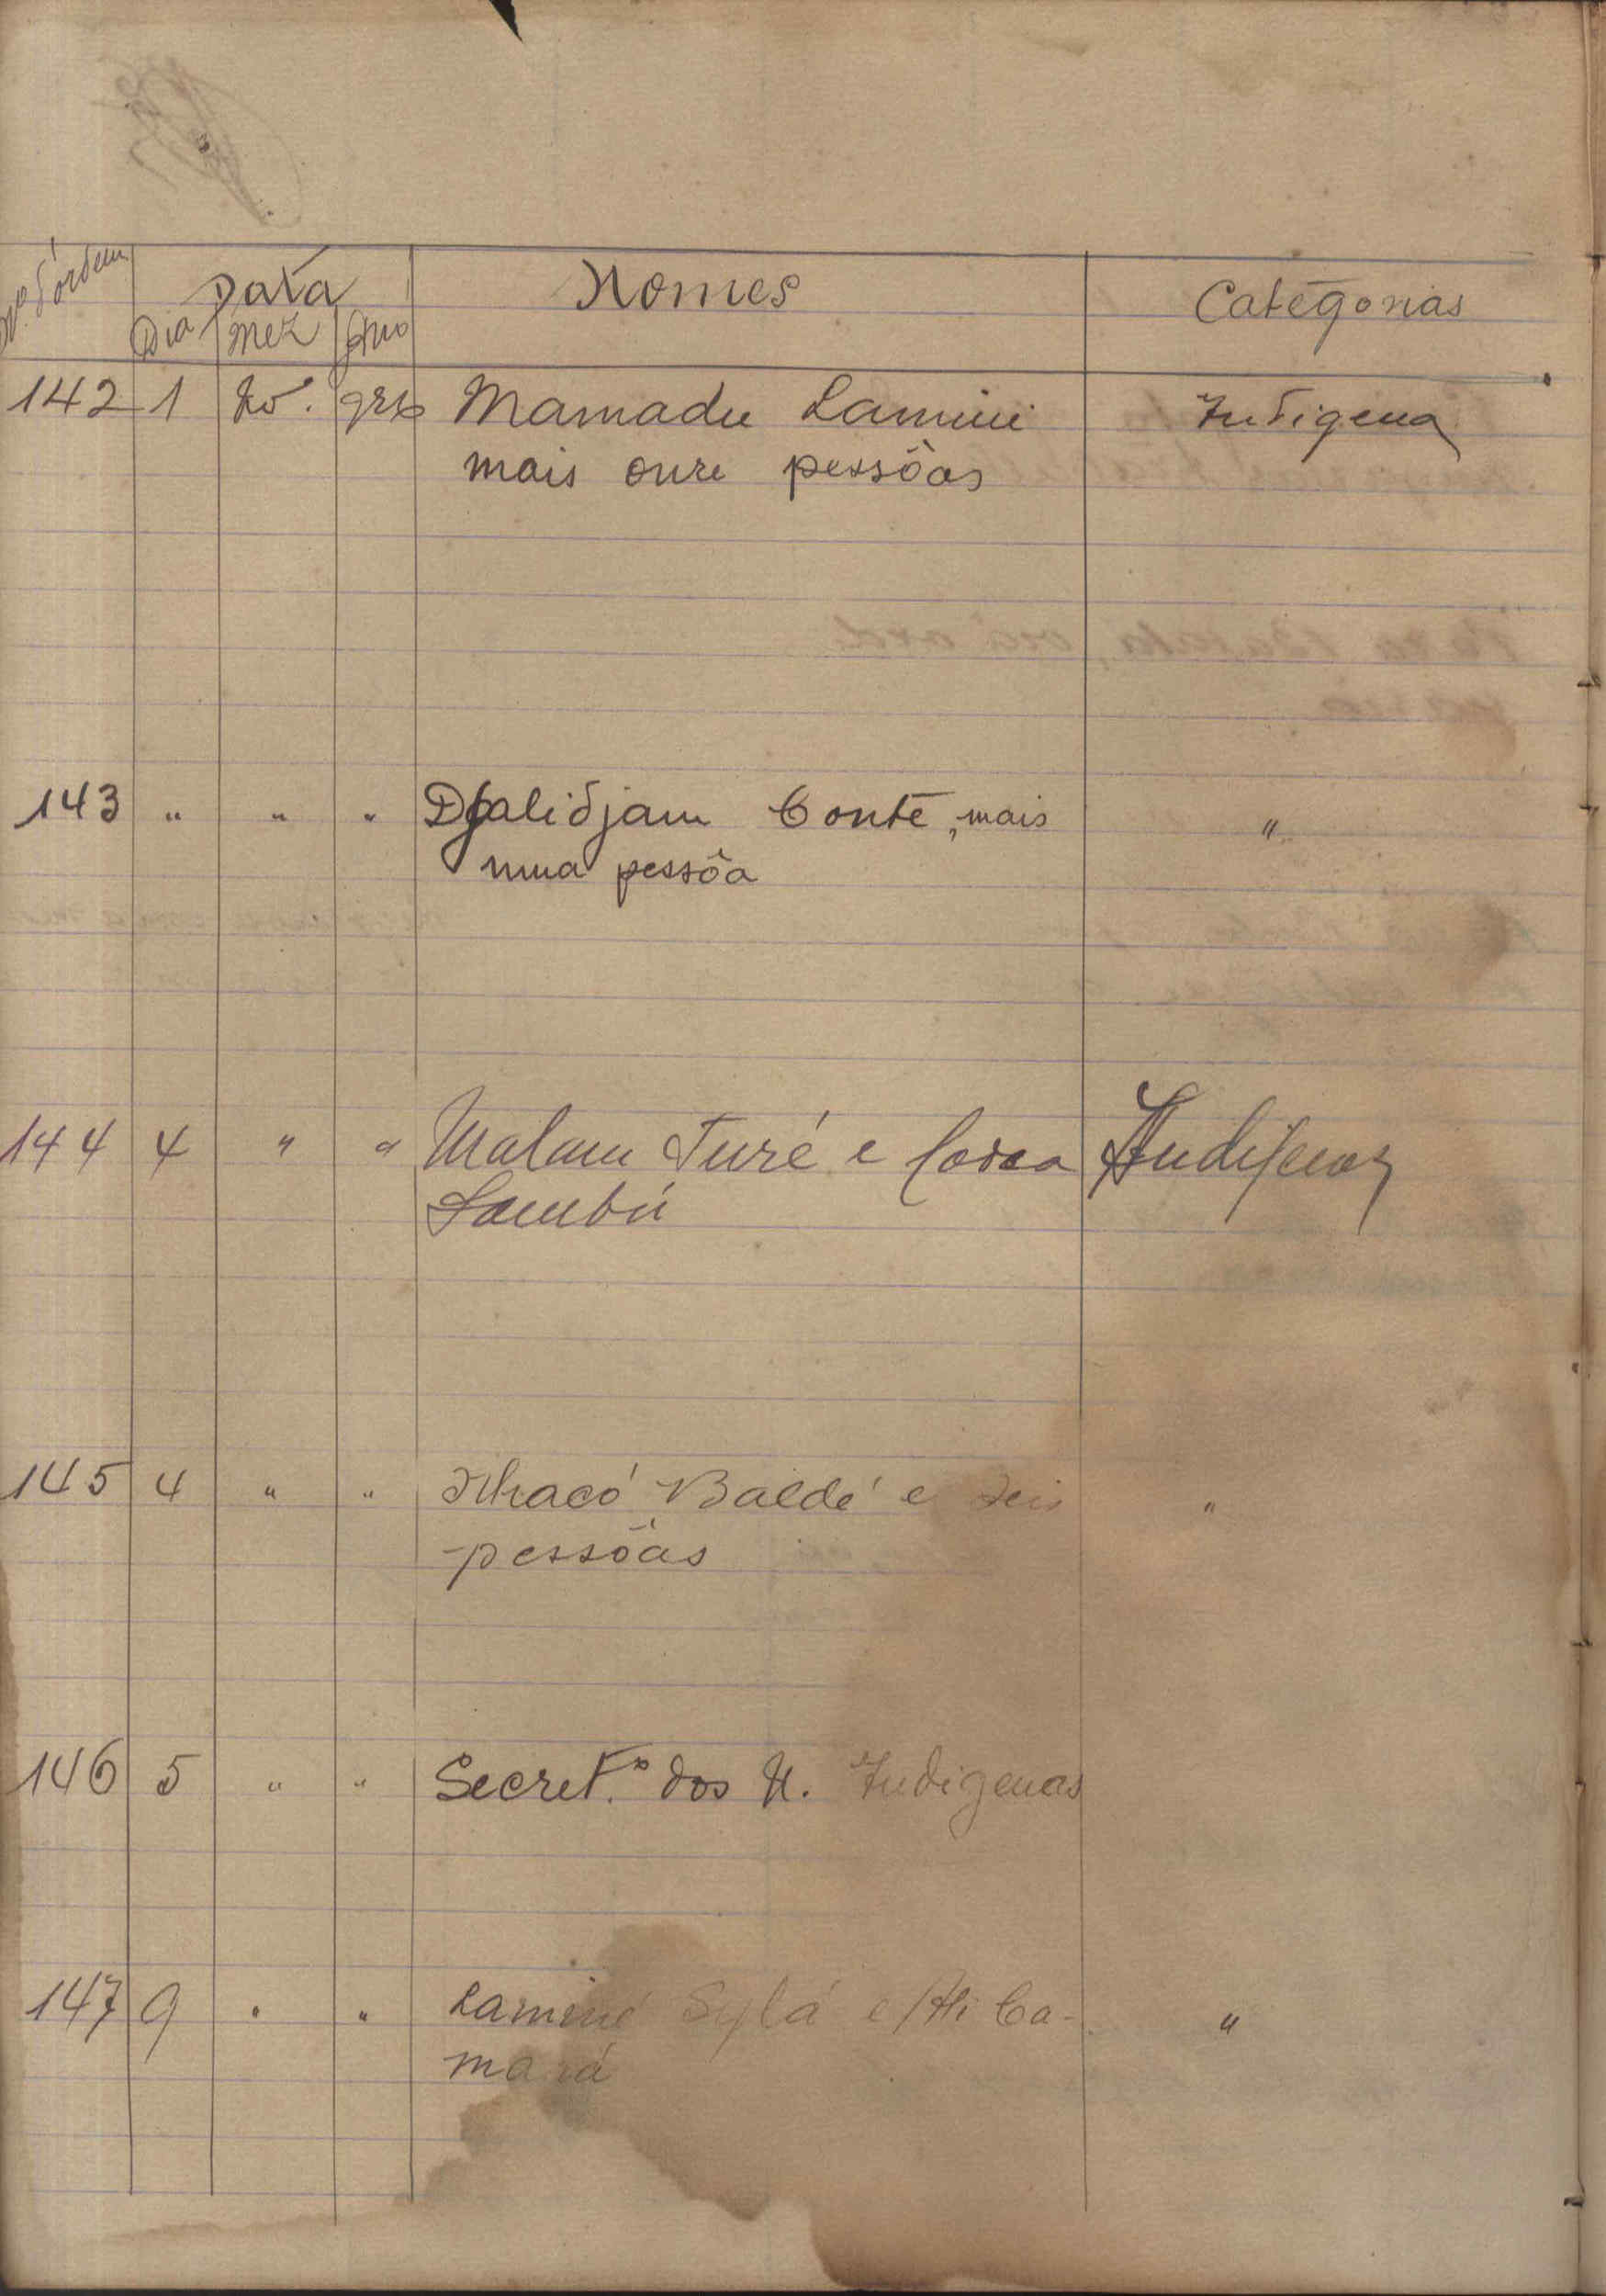 Nº d'órdem Data Nomes Categorias
Dia Mez Ano
142 1 Mamadu Lamine Indigena
mais onze pessôas
143 " " " Djalidjam Conté, mais "
uma pessôa
144 4 " " Malam Turé e Indigenas
Sambú
145 4 " " Baldé e seis "
pessôas
146 5 " " Secret.º dos N. Indigenas
147 9 " " Laminé Sylá e Ali Ca- "
mará